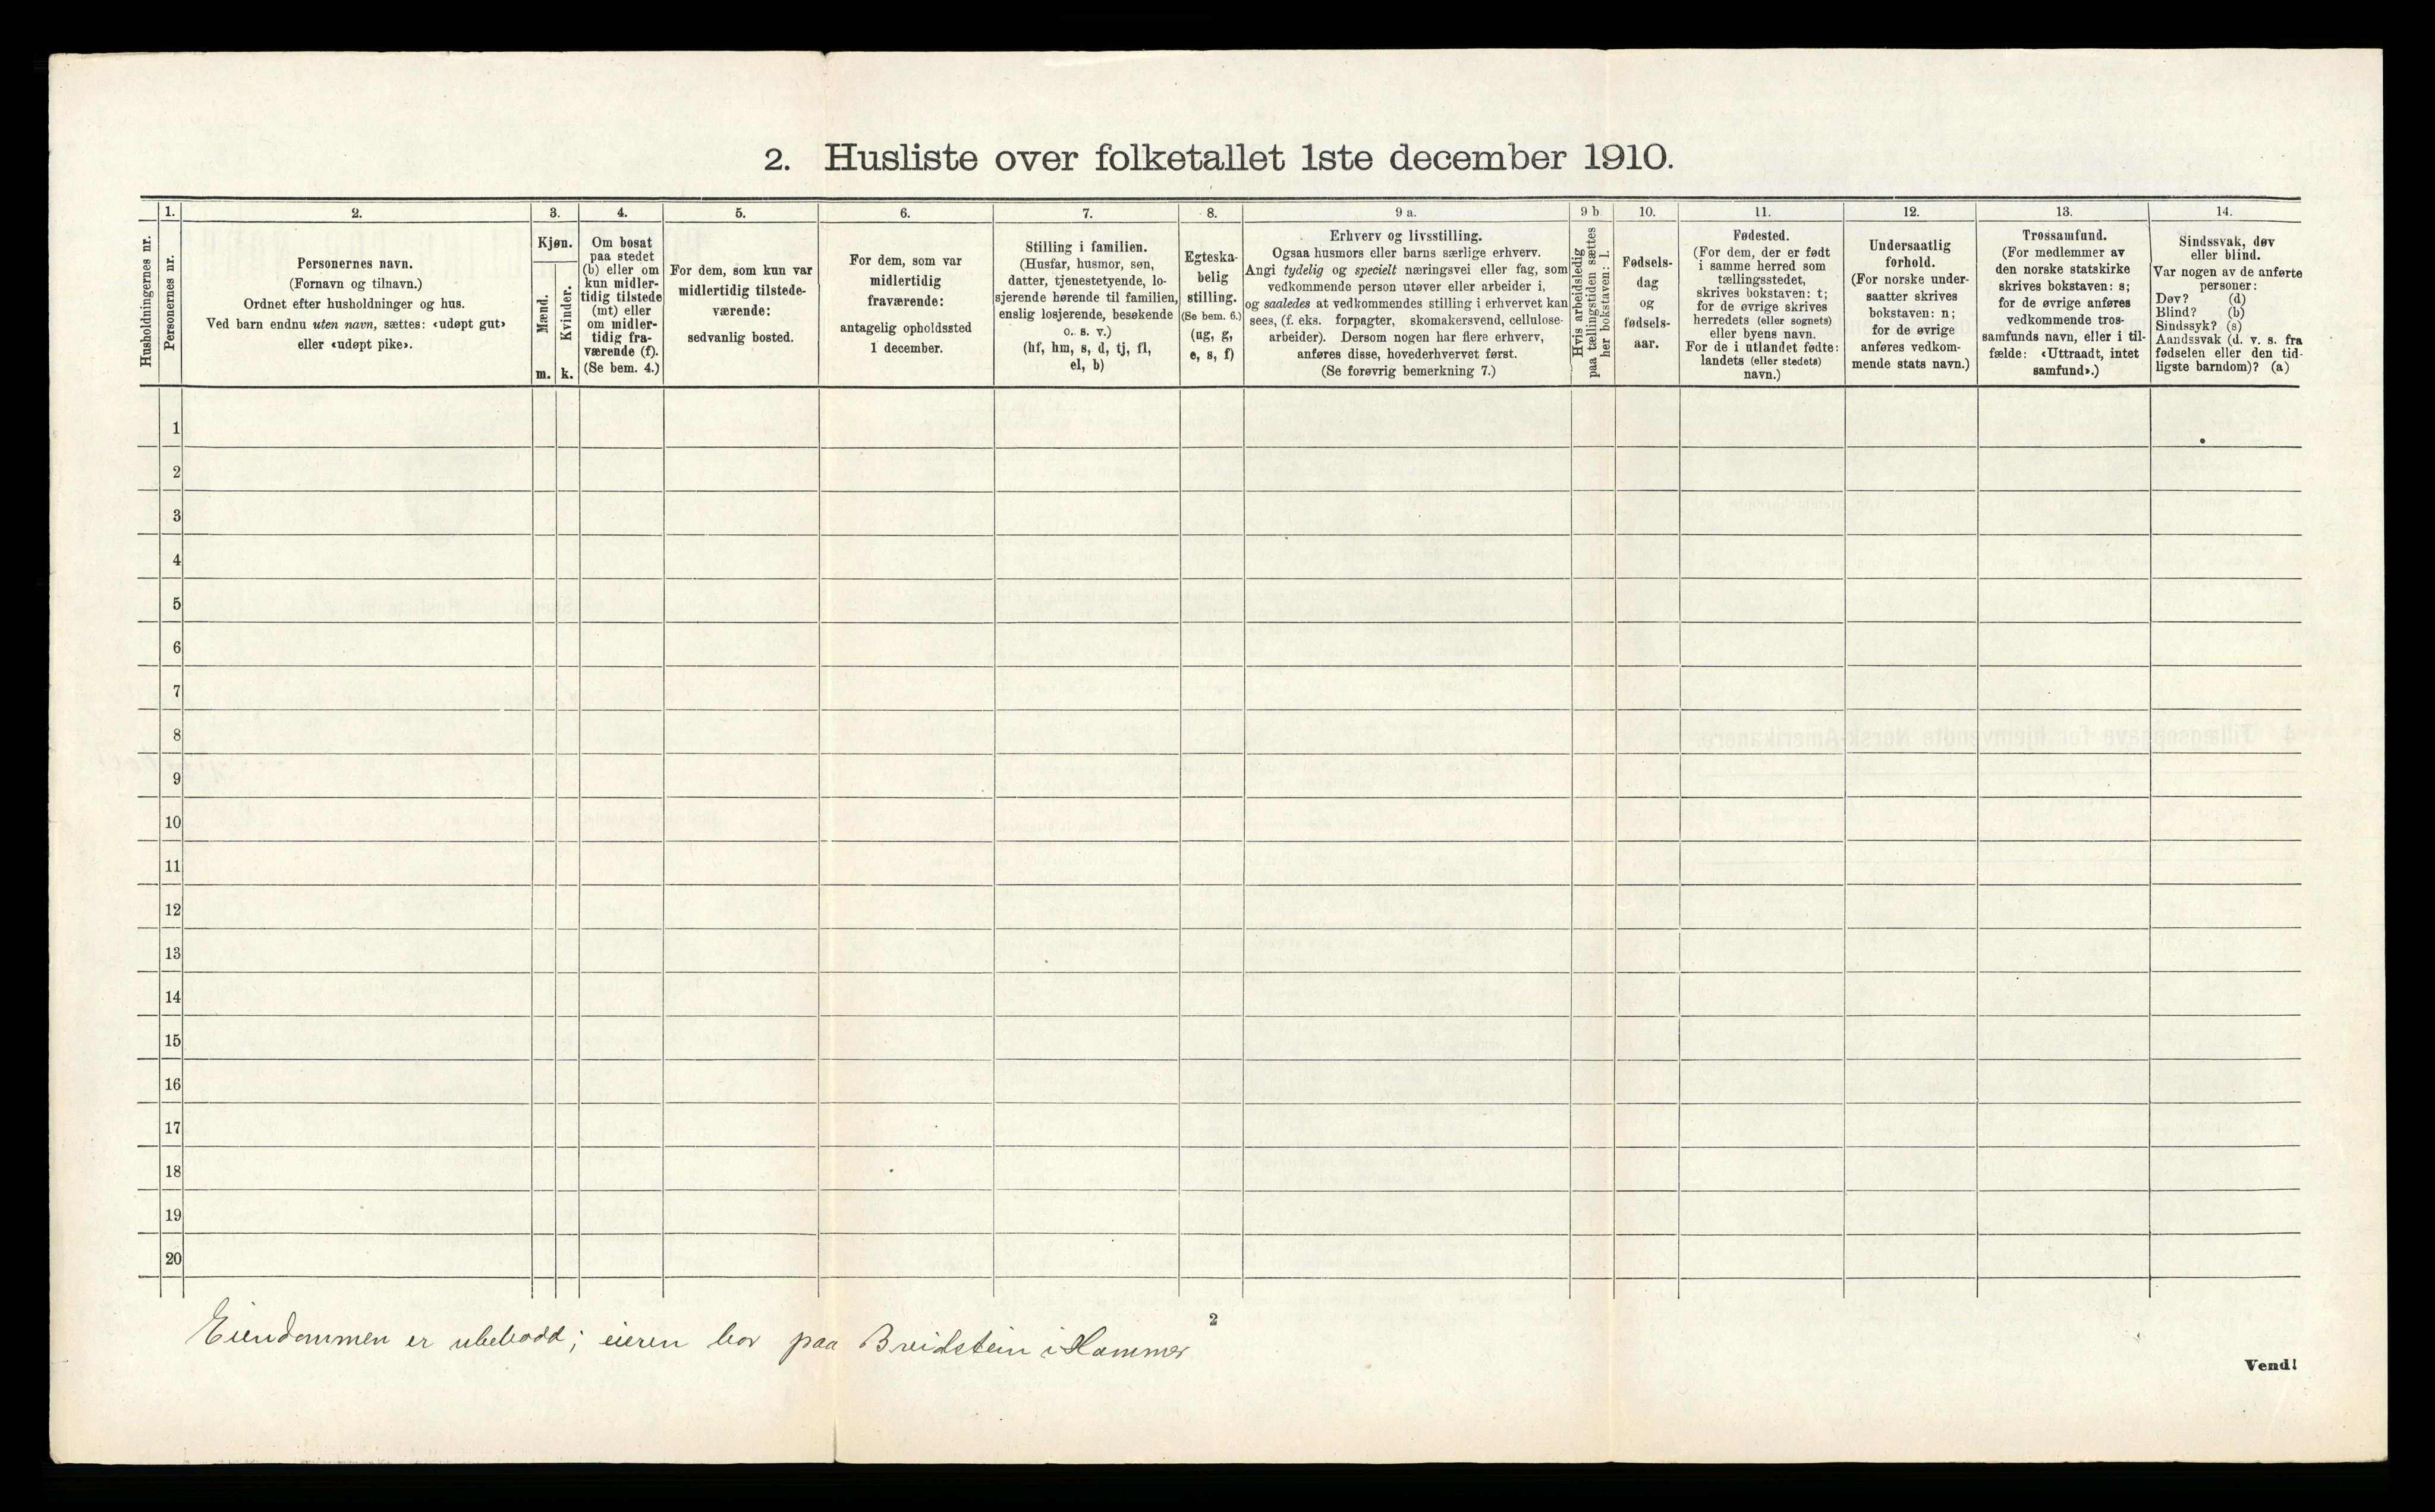 2. Husliste over folketallet 1ste december 1910.
Husholdningernes nr.
1.
Personernes nr.
2.
Personernes navn.
(Fornavn og tilnavn.)
Ordnet efter husholdninger og hus.
Ved barn endnu uten navn, sættes: «udøpt gut»
eller «udøpt pike».
3.
Kjøn.
Mænd.
Kvinder.
m. k.
4.
Om bosat
paa stedet
(b) eller om
kun midler-
tidig tilstede
(mt) eller
om midler-
tidig fra-
værende (f).
(Se bem. 4.)
5.
For dem, som kun var
midlertidig tilstede-
værende:
sedvanlig bosted.
6.
For dem, som var
midlertidig
fraværende:
antagelig opholdssted
1 december.
7.
Stilling i familien.
(Husfar, husmor, søn,
datter, tjenestetyende, lo-
sjerende hørende til familien,
enslig losjerende, besøkende
o. s. v.)
(hf, hm, s, d, tj, fl,
el, b)
8.
Egteska-
belig
stilling.
(Se bem. 6.)
(ug, g,
e, s, f)
9 a.
Erhverv og livsstilling.
Ogsaa husmors eller barns særlige erhverv.
Angi tydelig og specielt næringsvei eller fag, som
vedkommende person utøver eller arbeider i,
og saaledes at vedkommendes stilling i erhvervet kan
sees, (f. eks. forpagter, skomakersvend, cellulose-
arbeider). Dersom nogen har flere erhverv,
anføres disse, hovederhvervet først.
(Se forøvrig bemerkning 7.)
9 b
Hvis arbeidsledig
paa tællingstiden sættes
her bokstaven: l.
10.
Fødsels-
dag
og
fødsels-
aar.
11.
Fødested.
(For dem, der er født
i samme herred som
tællingsstedet,
skrives bokstaven: t;
for de øvrige skrives
herredets (eller sognets)
eller byens navn.
For de i utlandet fødte:
landets (eller stedets)
navn.)
12.
Undersaatlig
forhold.
(For norske under-
saatter skrives
bokstaven: n;
for de øvrige
anføres vedkom-
mende stats navn.)
13.
Trossamfund.
(For medlemmer av
den norske statskirke
skrives bokstaven: s;
for de øvrige anføres
vedkommende tros-
samfunds navn, eller i til-
fælde: «Uttraadt, intet
samfund».)
14.
Sindssvak, døv
eller blind.
Var nogen av de anførte
personer:
Døv? (d)
Blind? (b)
Sindssyk? (s)
Aandssvak (d. v. s. fra
fødselen eller den tid-
ligste barndom)? (a)
1
2
3
4
5
6
7
8
9
10
11
12
13
14
15
16
17
18
19
20
2
Eiendommen er ubebodd; eieren bor paa Breidstein i Hammer
Vend!